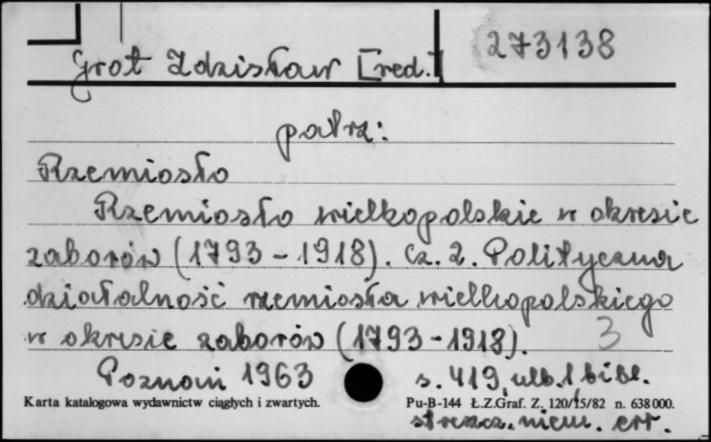 273138
Grot Zdzisław [red.]
patrz:
Rzemiosło
Rzemiosło wielkopolskie w okresie
zaborów (1793-1918). Cz. 2. Polityczna
działalność rzemiosła wielkopolskiego
w okresie zaborów (1793-1918). 3
Poznań 1963 s. 419, ulb. 1 bibl.
Karta katalogowa wydawnictw ciągłych i zwartych. Pu-B-144 Ł.Z.Graf. Z. 120/15/82 n. 638000.
streszcz. niem. err.